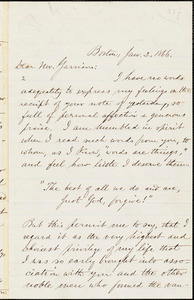 Boston, Jan. 2. 1866.
Dear Mr. Garrison:
I have no words
adequately to express my feelings on the
receipt of your note of yesterday, so
full of personal affection & generous
praise. I am humbled in spirit
when I read such words from you, to
whom, as I feel, words are things, &
and feel how little I deserve them.
"The best of all we do and are,
Just God, forgive!"
But this permit me to say, that I
regard it as the very highest and
choicest privilege of my life that
I was so early brought into asso-
ciation with you and the other
noble men who joined the van